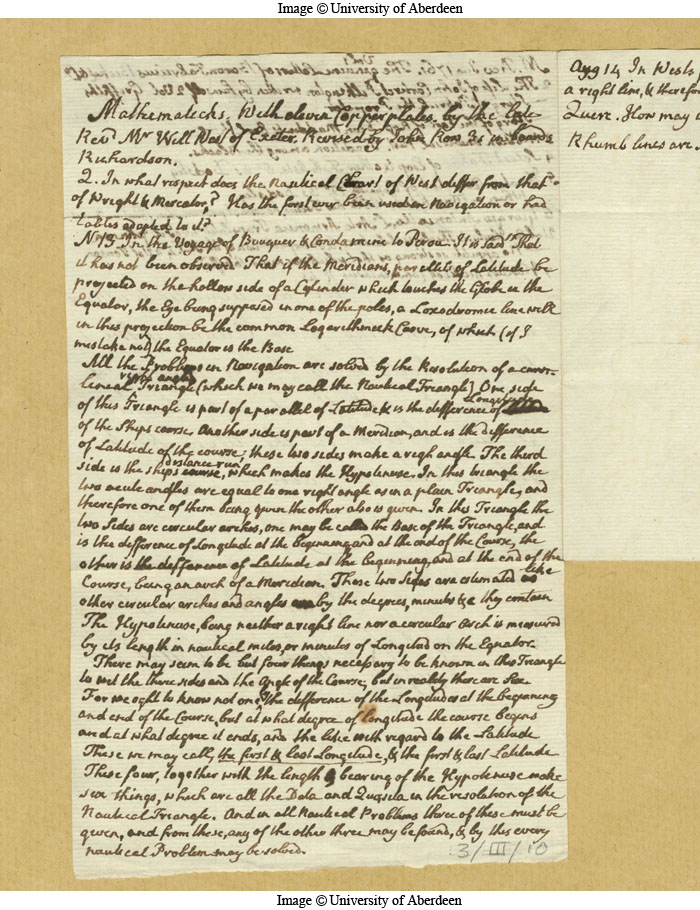 Image © University of Aberdeen
Mathematicks, With eleven Copperplates, by the late
Revd Mr Will West of Exeter. Revised by John Row 3s in boards
Richardson.
Q. In what respect does the Nautical Chart of West differ from that
of Wright & Mercator? Has the first ever been used in Navigation or had
tables adapted to it?
N 13 In the Voyage of Bouguer & Condamine to Peroa. It is said That
it has not been observed That if the Meridians, parallels of Latitude be
projected on the hollow side of a Cylinder which touches the Globe in the
Equator, the Eye being supposed in one of the poles, a Loxodromic line will
in this projection be the common Logarithmick Curve, of which (if I
mistake not) the Equator is the Base
All the Problems in Navigation are solved by the Resolution of a curvi-
lineal right angled Triangle (which we may call the Nautical Triangle) One side
of this Triangle is part of a parallel of Latitude & is the difference of Longitude
of the Ships course. Another side is part of a Meridian, and is the difference
of Latitude of the course; these two sides make a righ angle. The third
side is the ships distance run, which makes the Hypotenuse. In this triangle the
two acute angles are equal to one right angle as in a plain Triangle, and
therefore one of them being given the other also is given. In this Triangle the
two Sides are circular arches, one may be called the Base of the Triangle, and
is the difference of Longitude at the beginning and at the end of the Course, the
other is the difference of Latitude at the beginning, and at the end of the
Course, being an arch of a Meridian. These two Sides are estimated like
other circular arches and angles by the degrees, minutes &c they contain
The Hypotenuse, being neither a right line nor a circular Arch is measured
by its length in nautical miles, or minutes of Longitud on the Equator.
There may seem to be but four things necessary to be known in this Triangle
to wit the three sides and the Angle of the Course; but in reality there are Six
For we ought to know not only the difference of the Longitudes at the beginning
and end of the Course, but at what degree of longitude the course begins
and at what degree it ends, and the like with regard to the Latitude
These we may call, the first & last Longitude, & the first & last Latitude
These four, together with the length & bearing of the Hypotenuse make
six things, which are all the Data and Quæsita in the resolution of the
Nautical Triangle. And in all Nautical Problems three of these must be
given, and from these, any of the other three may be found, & by this every
nautical Problem may be solved.
3/III/10
Aug 14 In Wests
a right line, & therefor
Quere. How may
Rhumb lines are
Image © University of Aberdeen